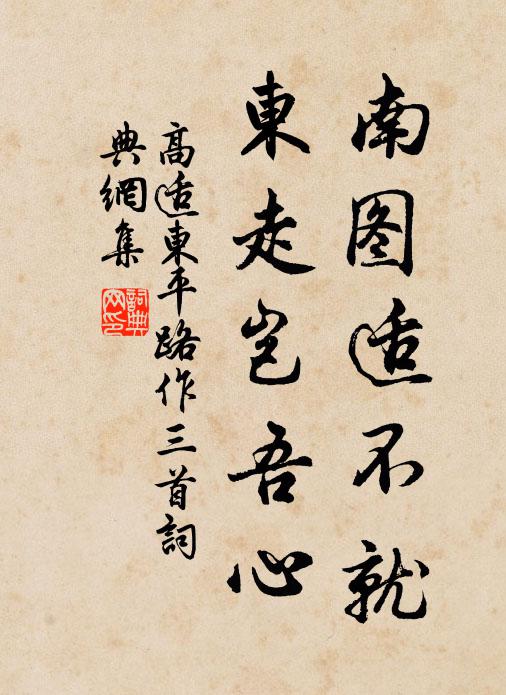 南图适不就
東走岂吾心
高适東平路作三首詞
典網集
詞典网印